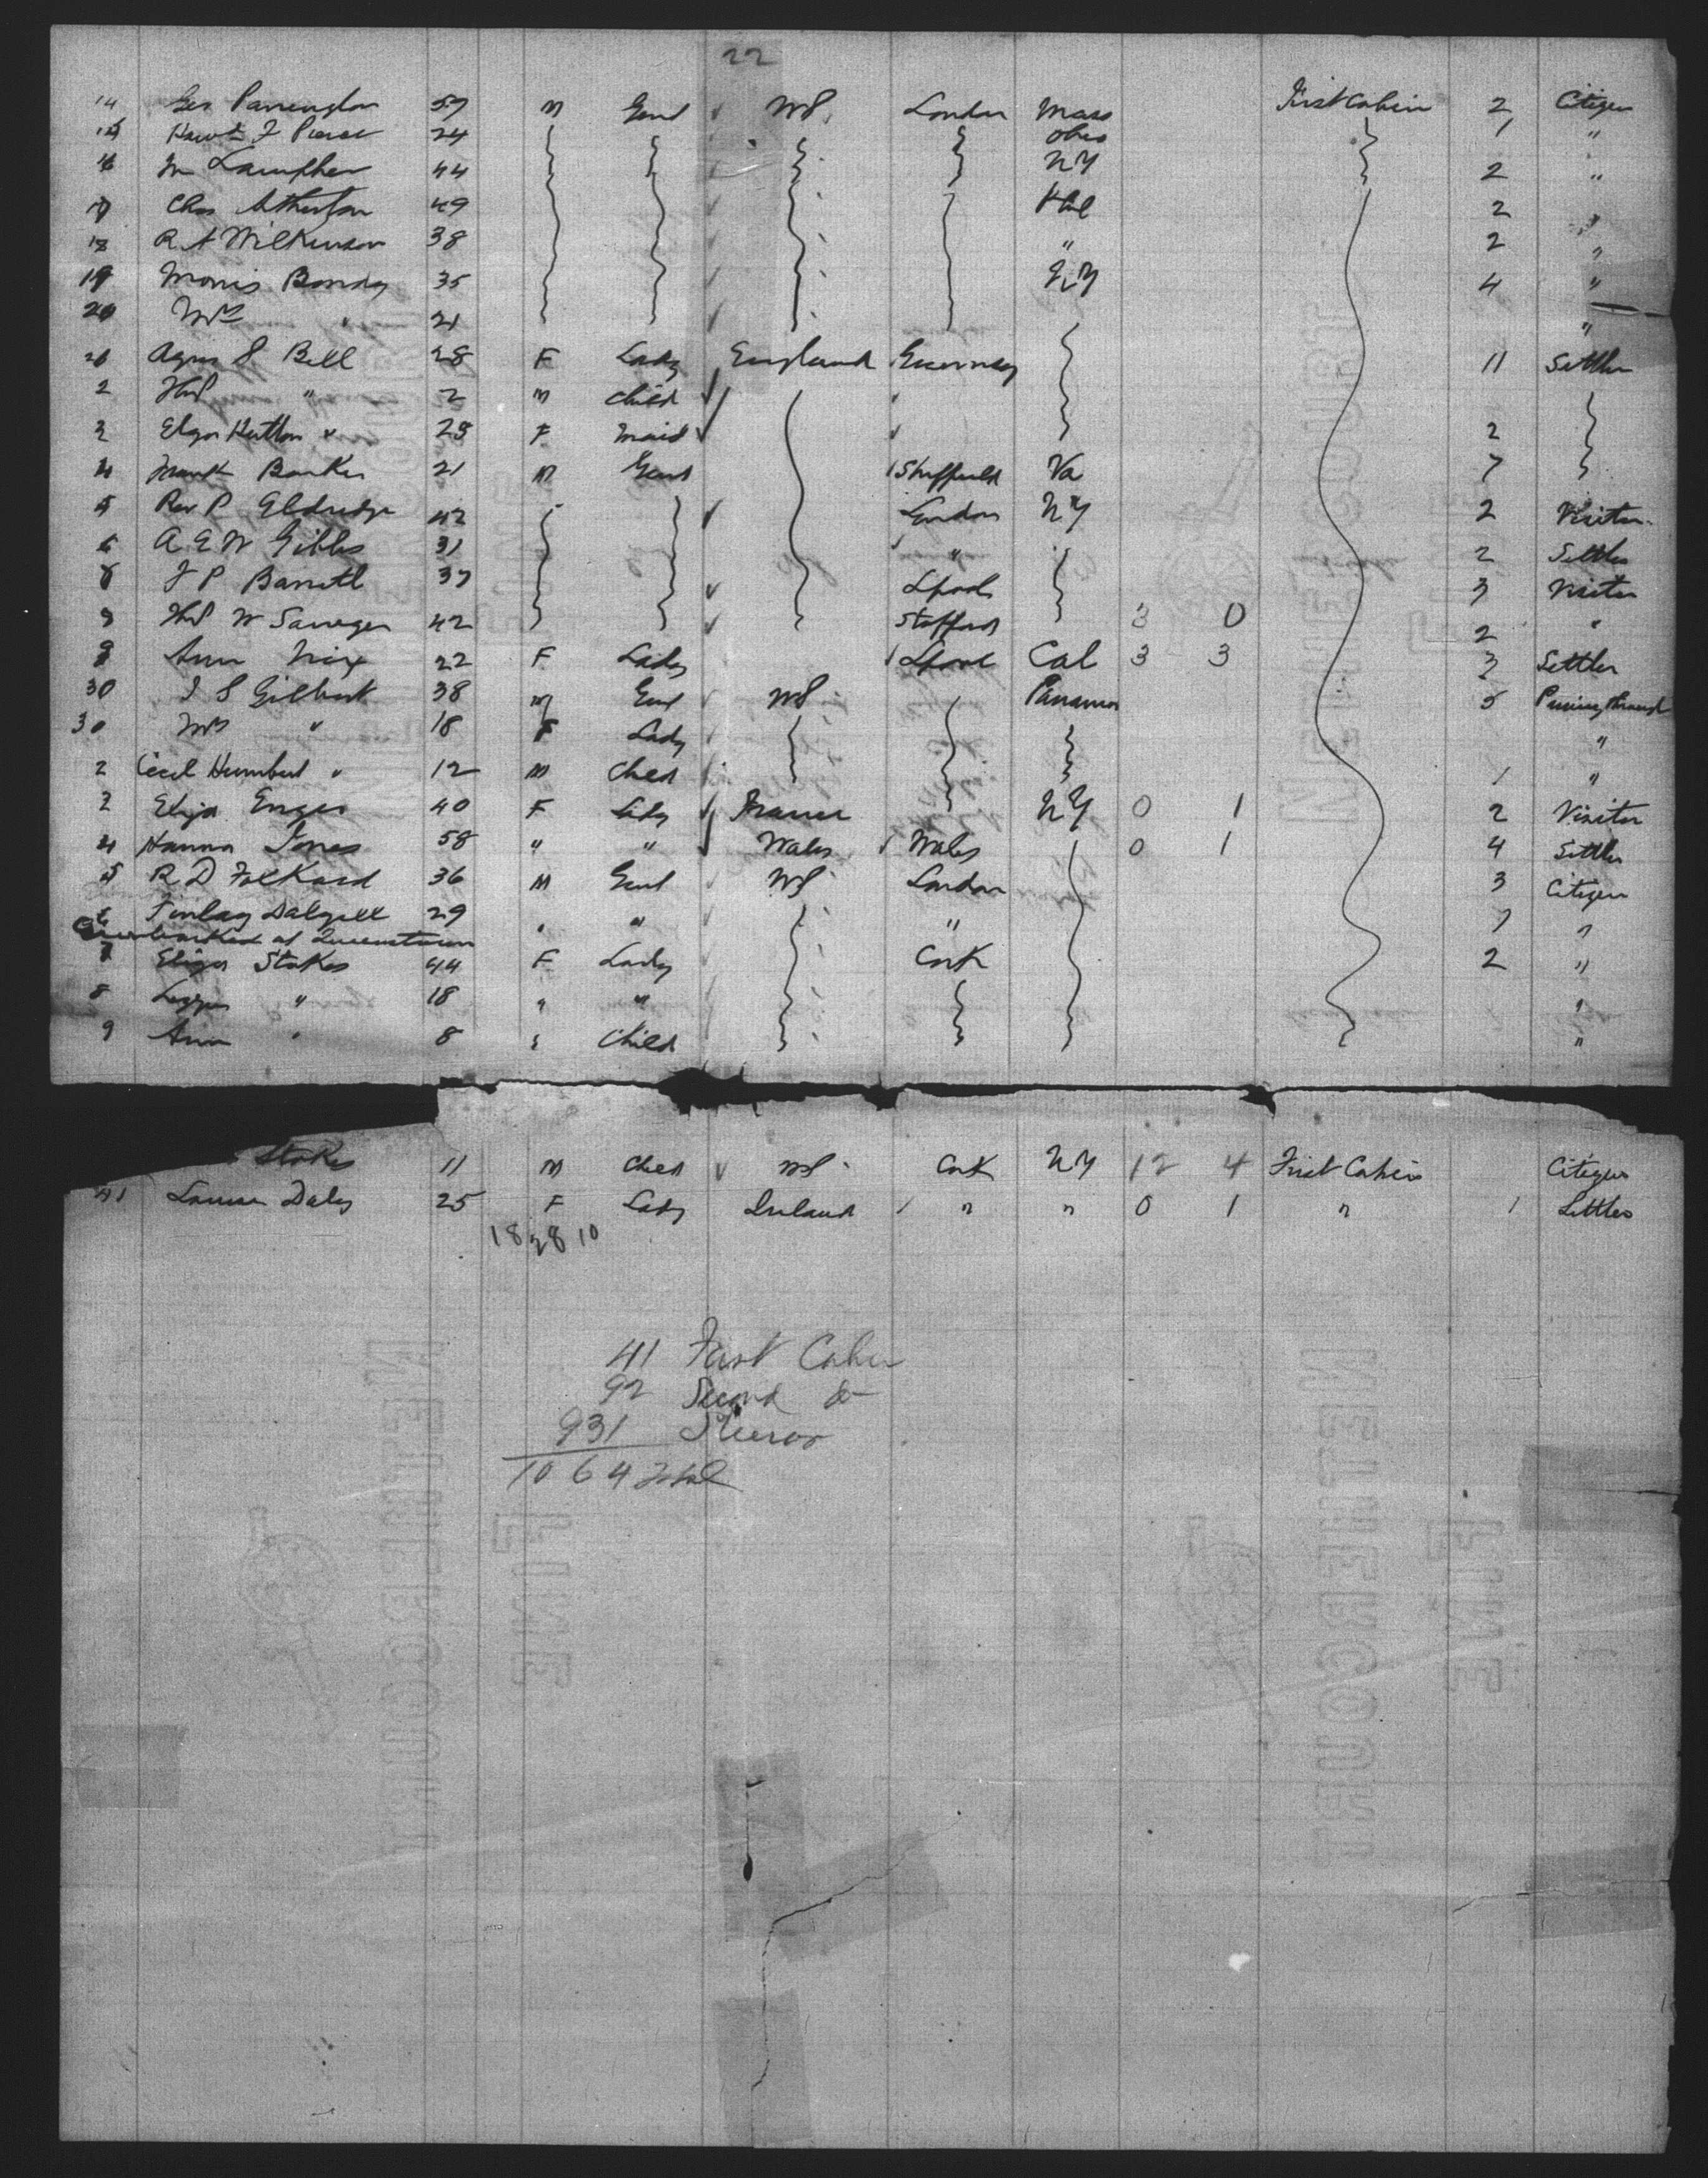 22
14 Geo Parrington 57 M Gent US London Mass First Cabin 2 Citizen
15 F Pierce 24 Ohio 1 "
16 Wm Lampher 44 NY 2 "
17 Chas Atherton 49 2 "
18 R A Wilkinson 38 " 2 "
19 Morris Bondy 35 NY 4 "
20 Mrs " 21 "
Agnes S Bell 28 F Lady England Guernsey 11 Settler
2 " 2 M Child
3 Hutton " 28 F Maid 2
4 Frank Barker 21 M Gent Sheffield Va 7
5 Rev P Eldredge 42 London NY 2 Visitor
6 A E W Gibbs 31 " 2 Settler
J P Barrett 37 Lpool 3 Visitor
W 42 Stafford 3 0 2 "
9 Ann Nix 22 F Lady Lpool Cal 3 3 3 Settler
30 J S Gilbert 38 M Gent US Panama 5 Passing through
30 Mrs " 18 F Lady "
2 Cecil Humbert " 12 M Child 1 "
Eliza 40 F Lady France NY 0 1 2 Visitor
4 Hanna Jones 58 " " Wales Wales 0 1 4 Settler
5 R D Folkard 36 M Gent US London 3 Citizen
6 Finlay Dalzell 29 " " " 1 "
Embarked at Queenstown
7 Eliza Stokes 44 F Lady Cork 2 "
8 " 18 " " "
9 Ann " 8 " Child "
Stokes 11 M Child US Cork NY 12 4 First Cabin Citizen
41 Daly 25 F Lady Ireland " " 0 1 " 1 Settler
18 28 10
41 First Cabin
92 Second do
931 Steerage
1064 Total